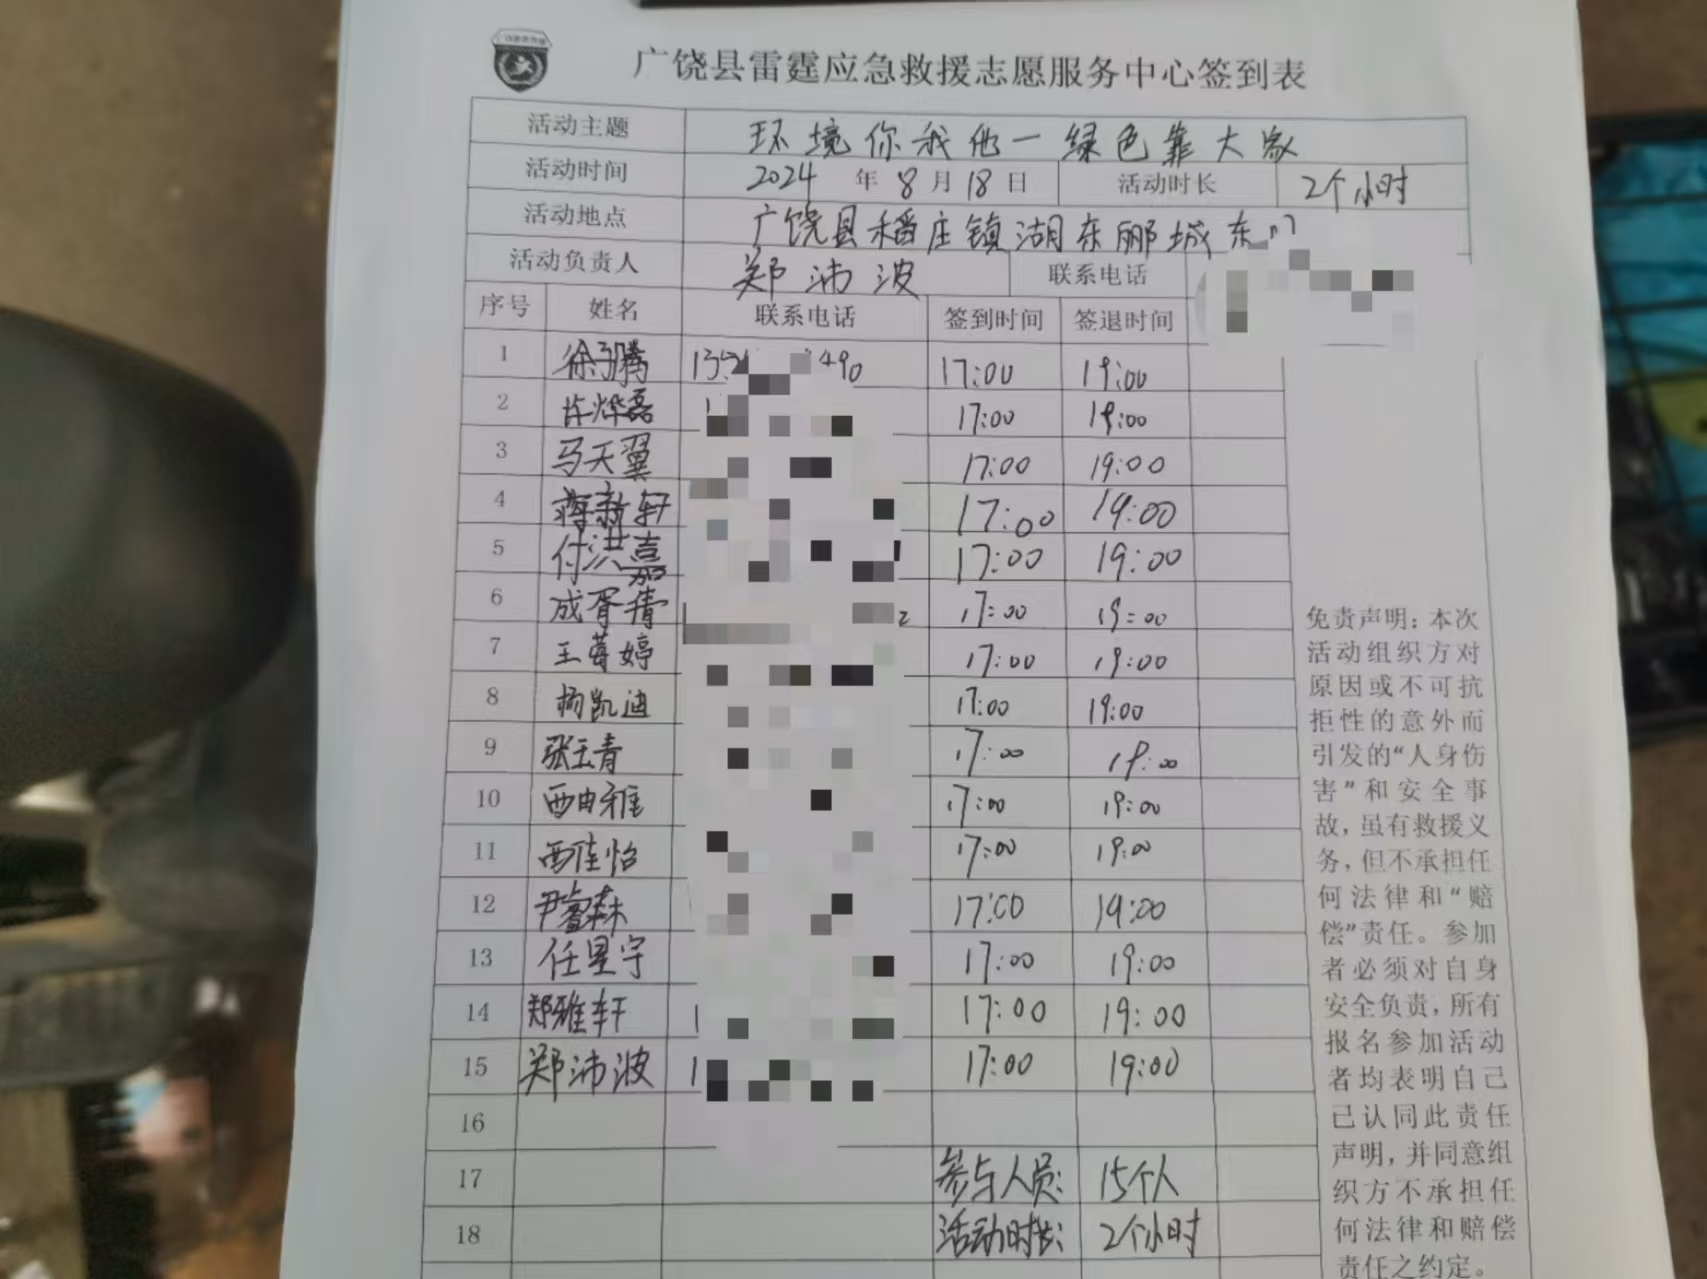 广饶县雷霆应急救援志愿服务中心签到表
活动主题 环境你我他一绿色靠大家
活动时间 2024 年 8 月 18 日 活动时长 2个小时
活动地点 广饶县稻庄镇湖东郦城东门
活动负责人 郑沛波 联系电话
序号 姓名 联系电话 签到时间 签退时间
1 徐子腾 17:00 19:00
2 许烨磊 17:00 19:00
3 马天翼 17:00 19:00
4 蒋新轩 17:00 19:00
5 付洪嘉 17:00 19:00
6 成胥倩 17:00 19:00
7 王莓婷 17:00 19:00
8 杨凯迪 17:00 19:00
9 张玉青 17:00 19:00
10 西由雅 17:00 19:00
11 西佳怡 17:00 19:00
12 尹睿森 17:00 19:00
13 任星宇 17:00 19:00
14 郑雅轩 17:00 19:00
15 郑沛波 17:00 19:00
16
17 参与人员: 15个人
18 活动时长: 2个小时
免责声明：本次
活动组织方对
原因或不可抗
拒性的意外而
引发的“人身伤
害”和安全事
故，虽有救援义
务，但不承担任
何法律和“赔
偿”责任。参加
者必须对自身
安全负责，所有
报名参加活动
者均表明自己
已认同此责任
声明，并同意组
织方不承担任
何法律和赔偿
责任之约定。